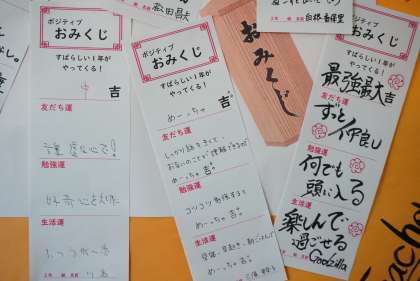 松田昌大
白根春保里
おみくじ
ポジティブ
おみくじ
すばらしい1年が
やってくる!
中
吉
友だち運
謙虚な心で!
勉強運
好奇心を大切
生活運
ポジティブ
おみくじ
すばらしい1年が
やってくる!
めーっちゃ
吉
友だち運
しっかり話をきいて、
お互いのことが理解できるので
めーっちゃ吉。
勉強運
コツコツ勉強すると
めーっちゃ吉。
生活運
早寝・早起き・朝ごはんで
めーっちゃ吉。
最強最大吉
友だち運
ずっと仲良し
勉強運
何でも
頭に入る
生活運
楽しんで
過ごせる
Godzilla